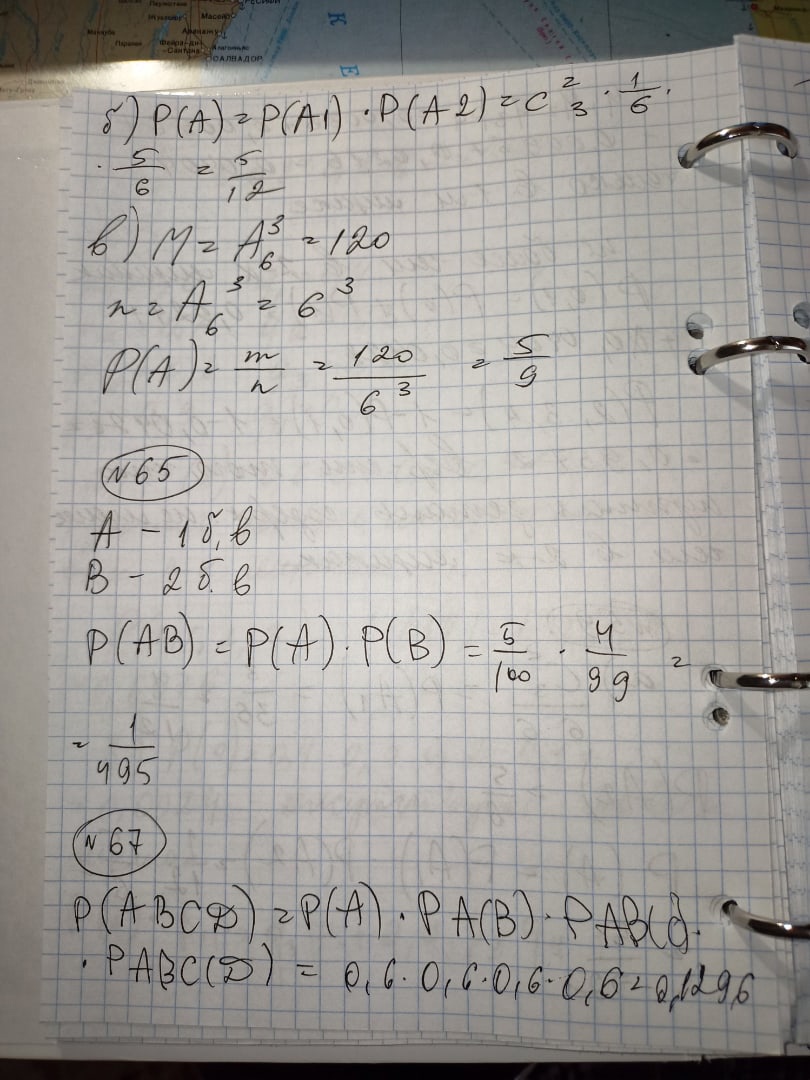 РЕСИФИ
Масейо
Аракажу
Фейра-ди-
-Сантана
Алагоиньяс
САЛВАДОР
К
Е
б) P(A) = P(A1) · P(A2) = C²₃ · 1/6 ·
· 5/6 = 5/12
в) M = A³₆ = 120
n = A₆³ = 6³
P(A) = m/n = 120/6³ = 5/9
N65
A - 1 б. в
B - 2 б. в
P(AB) = P(A) · P(B) = 5/100 · 4/99 =
= 1/495
N67
P(ABCD) = P(A) · PA(B) · PAB(C) ·
· PABC(D) = 0,6 · 0,6 · 0,6 · 0,6 = 0,1296